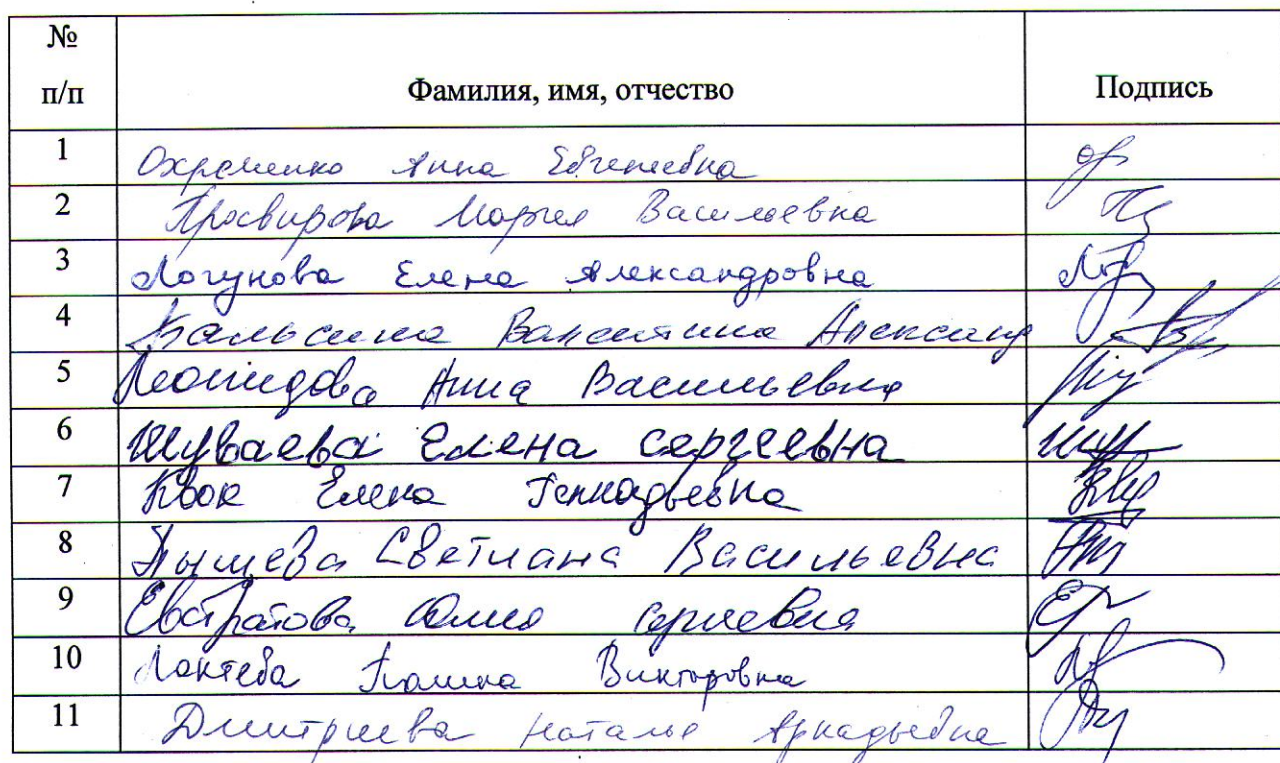 № п/п Фамилия, имя, отчество Подпись
1 Охременко Анна Евгеньевна
2 Просвирова Мария Васильевна
3 Логунова Елена Александровна
4 Валентина Александ
5 Леонидова Анна Васильевна
6 Шуваева Елена сергеевна
7 Квок Елена Геннадьевна
8 Светлана Васильевна
9 Евстратова Юлия сергеевна
10 Лактева Галина Викторовна
11 Дмитриева Наталье Аркадьевна